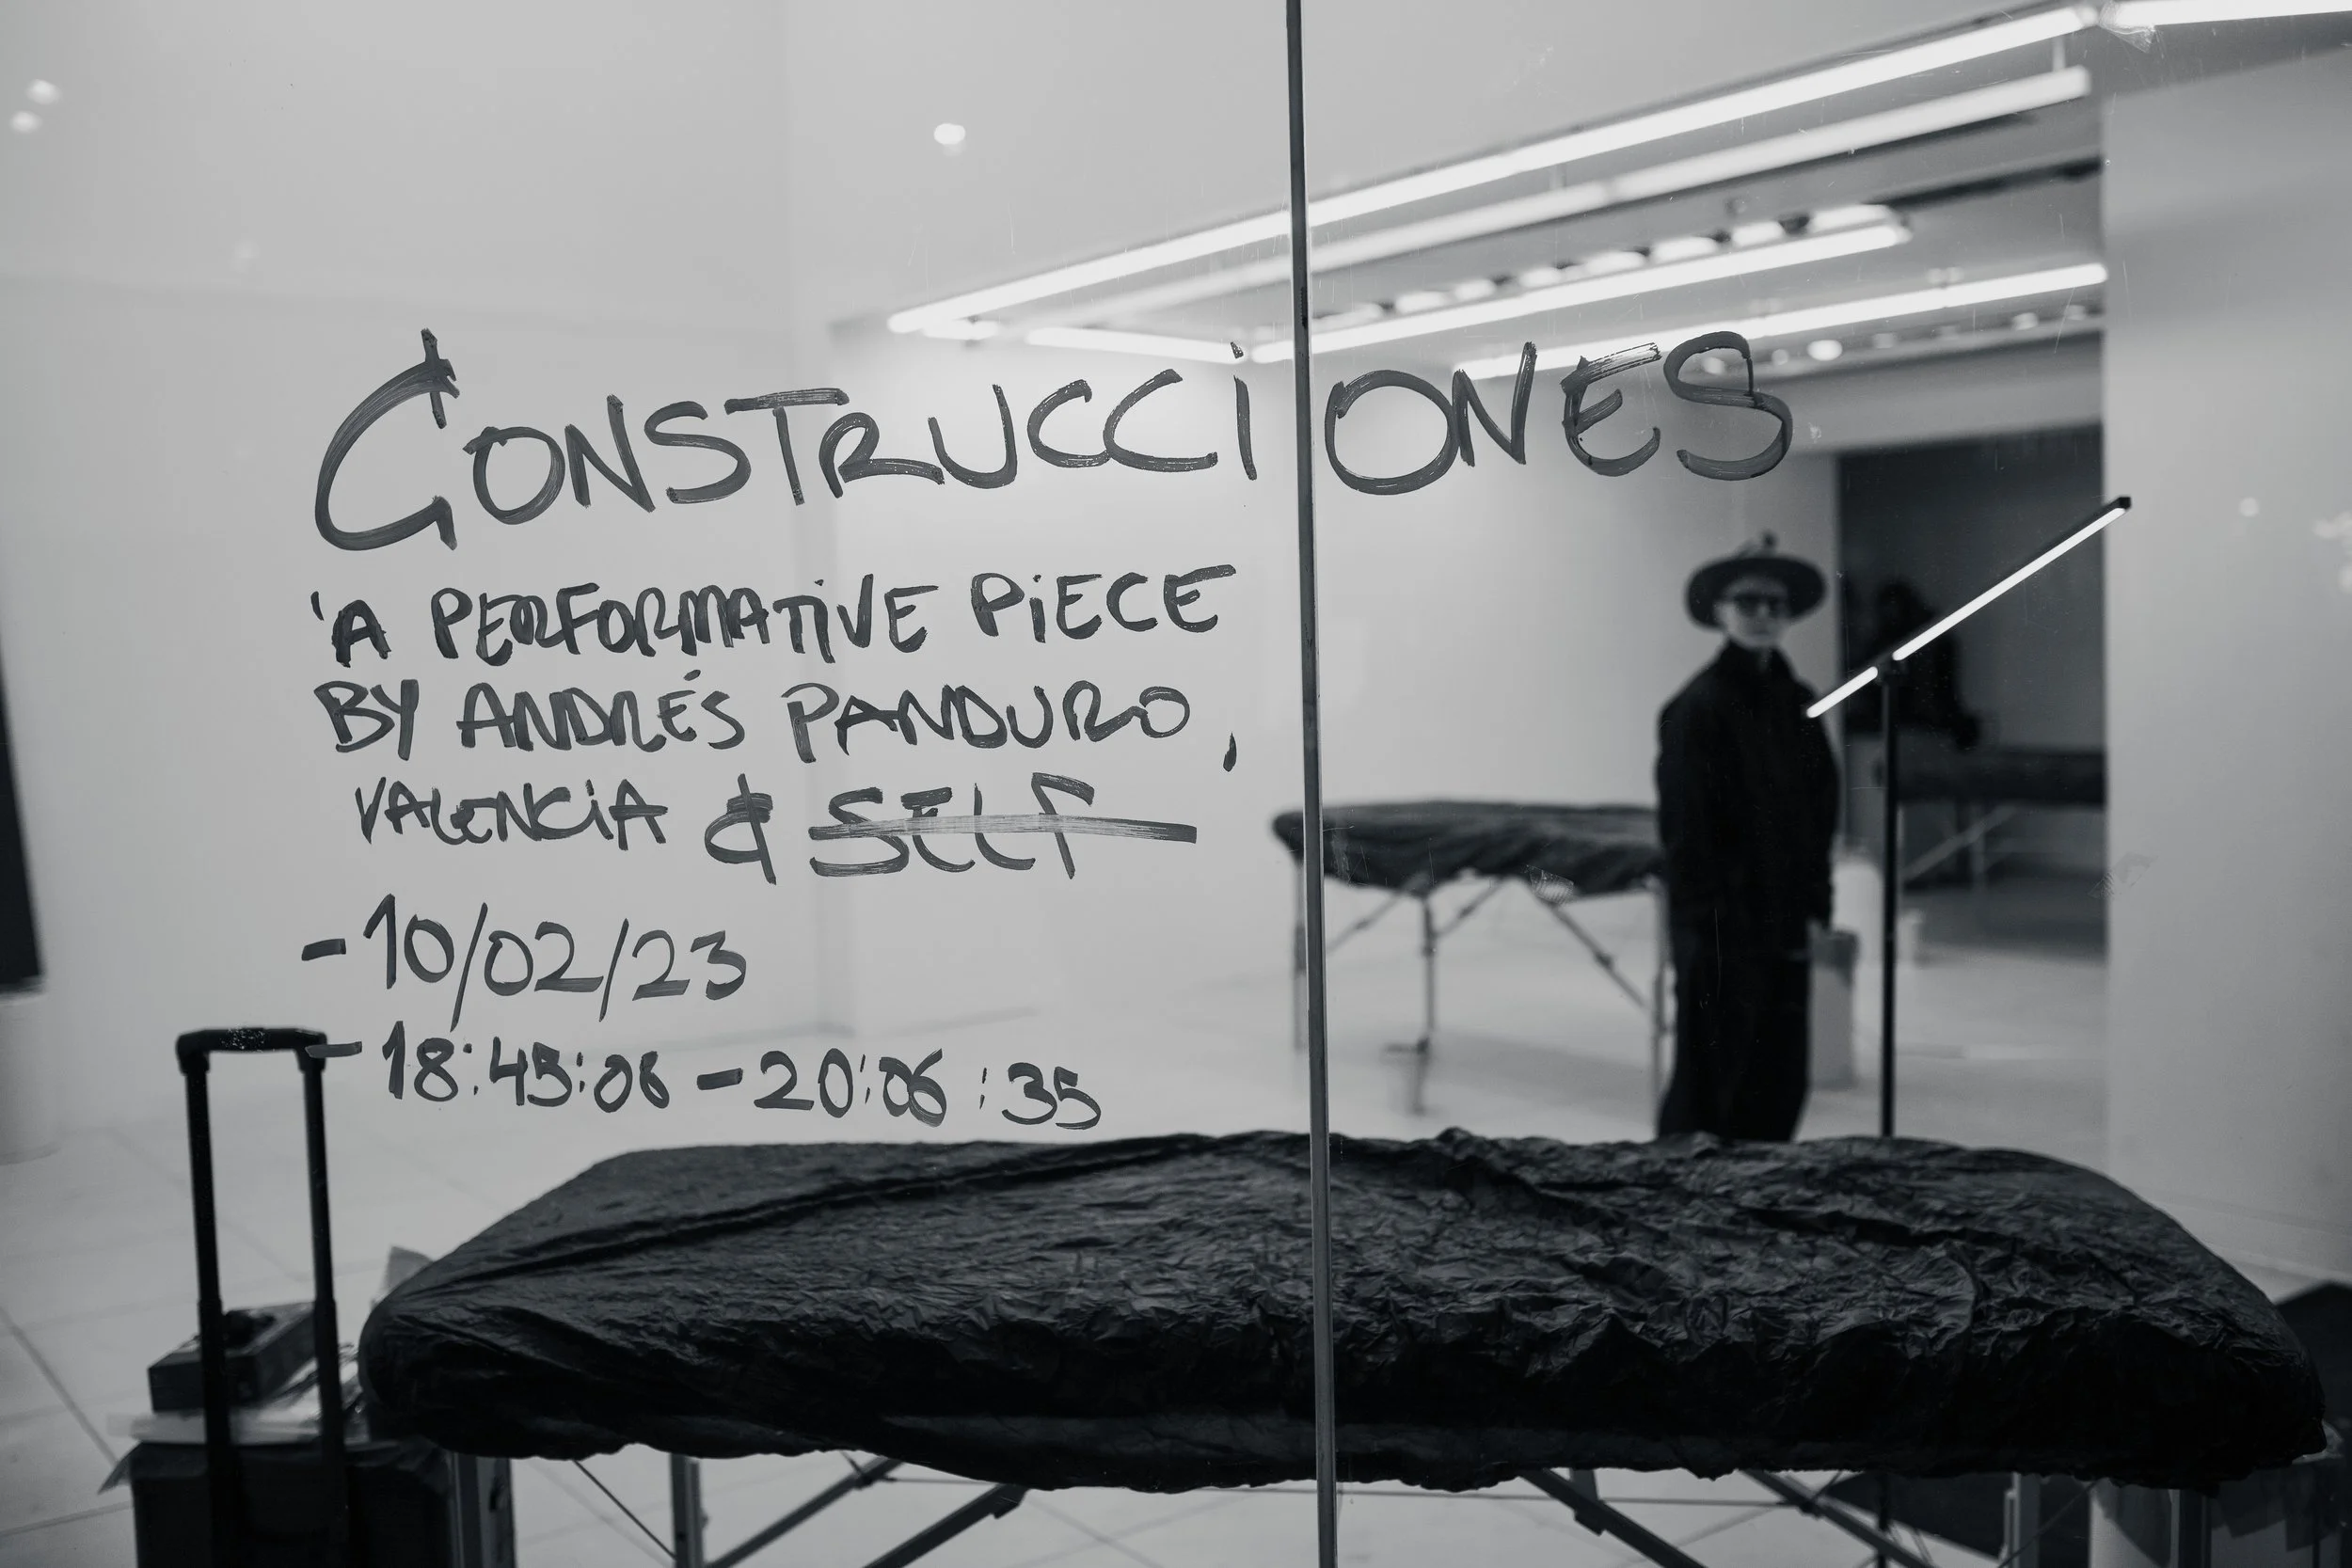 CONSTRUCCIONES
'A PERFORMATIVE PIECE
BY ANDRÉS PANDURO,
VALENCIA & SELF
- 10/02/23
- 18:45:06 - 20:06:35